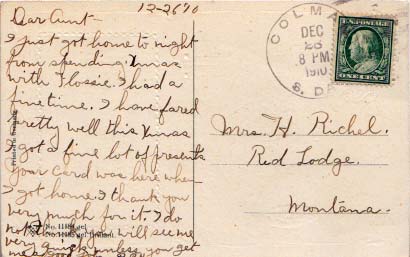 12-2610
Dear Aunt-
I just got home to night
from spending Xmas
with Flossie. I had a
fine time. I have fared
pretty well this Xmas
got a fine lot of presents
your card was here when
I got home. I thank you
very much for it. I do
not think you will see me
very quick unless you get
COLMA
DEC
8 PM
1910
S. DA
U.S. POSTAGE
ONE CENT
Mrs. H. Richel.
Red Lodge.
Montana.